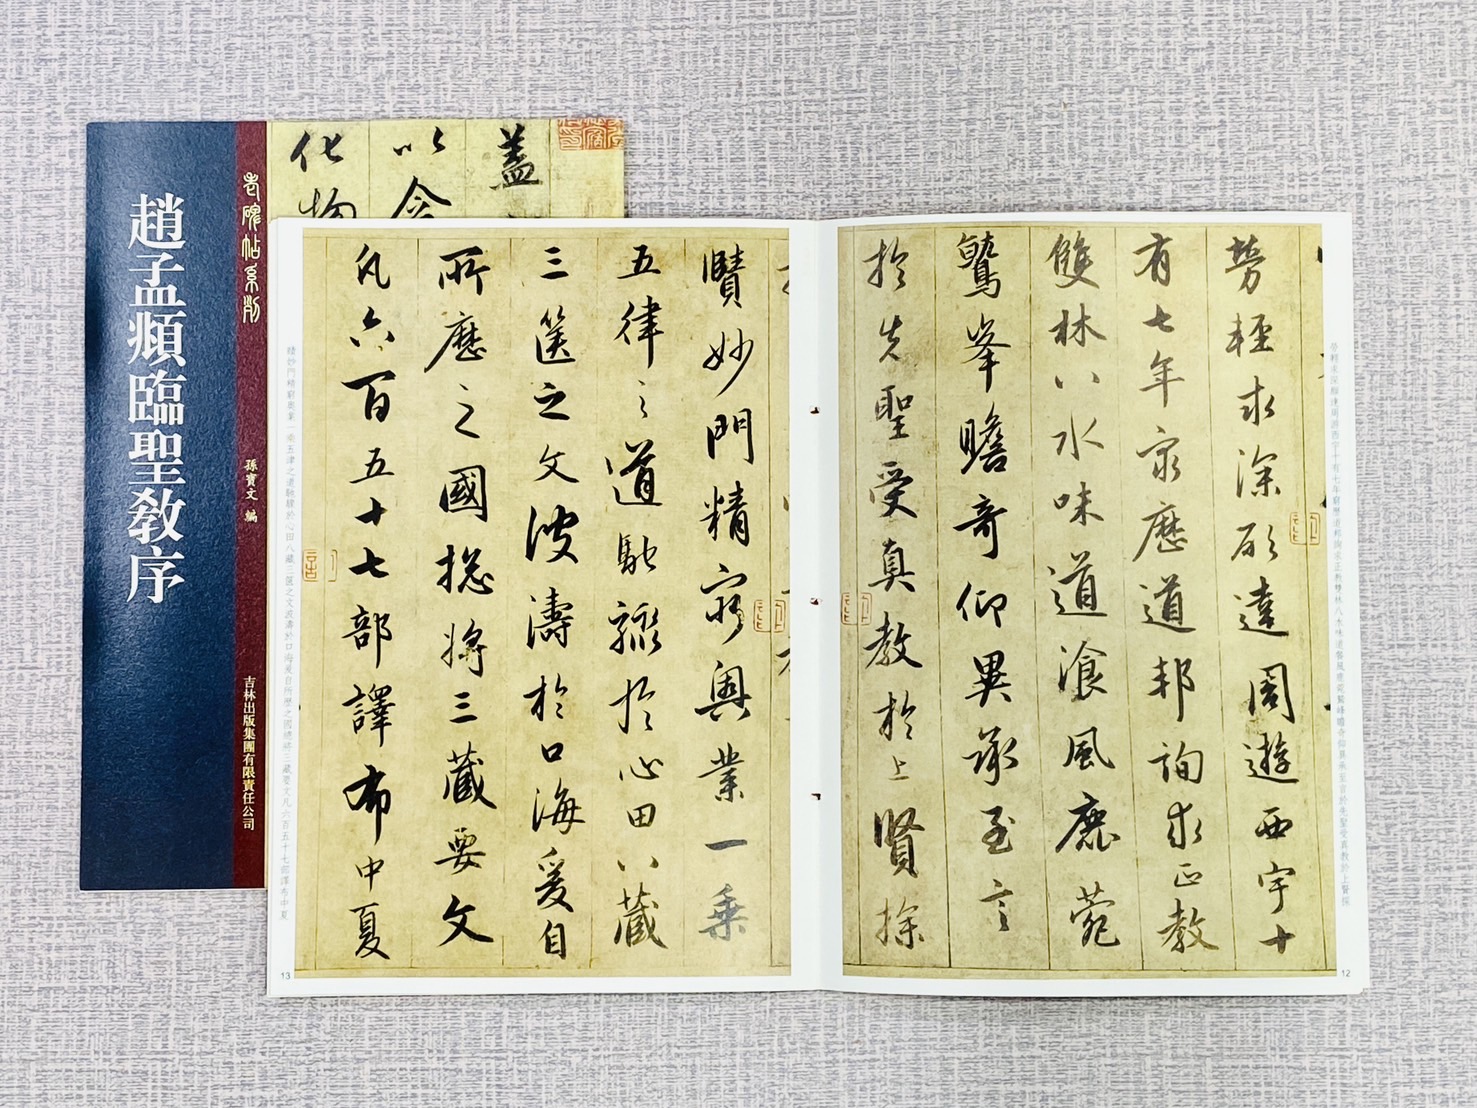 趙孟頫臨聖教序
老碑帖系列
孫寶文 編
吉林出版集團有限責任公司
蓋
以含
化物
勞輕求深願達周遊西宇十
有七年窮歷道邦詢求正教
雙林八水味道湌風鹿菀
鷲峯瞻奇仰異承至言
於先聖受真教於上賢探
勞輕求深願達周游西宇十有七年窮歷道邦詢求正教雙林八水味道餐風鹿菀鷲峰瞻奇仰異承至言於先聖受真教於上賢探
12
賾妙門精窮奧業一乘
五律之道馳驟於心田八藏
三篋之文波濤於口海爰自
所歷之國揔將三藏要文
凡六百五十七部譯布中夏
賾妙門精窮奧業一乘五律之道馳驟於心田八藏三篋之文波濤於口海爰自所歷之國總將三藏要文凡六百五十七部譯布中夏
13